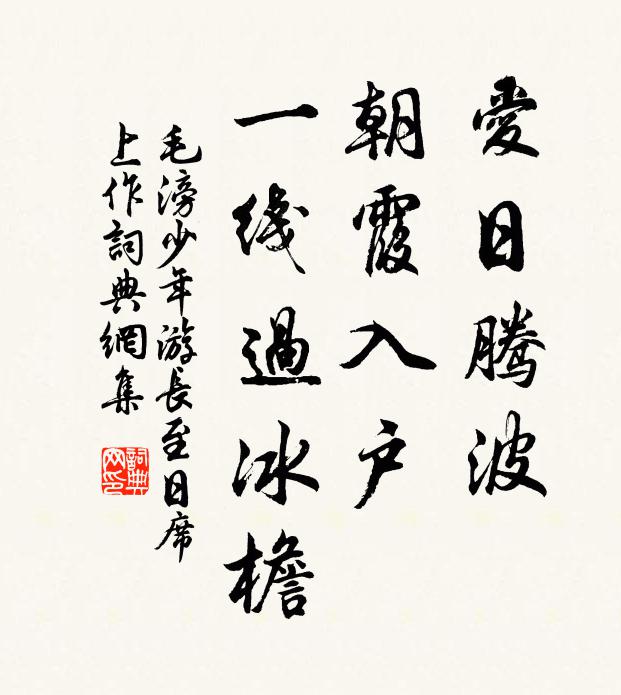 愛日騰波
朝霞入户
一綫過冰檐
毛滂少年游長至日席
上作詞典網集
詞典
网印